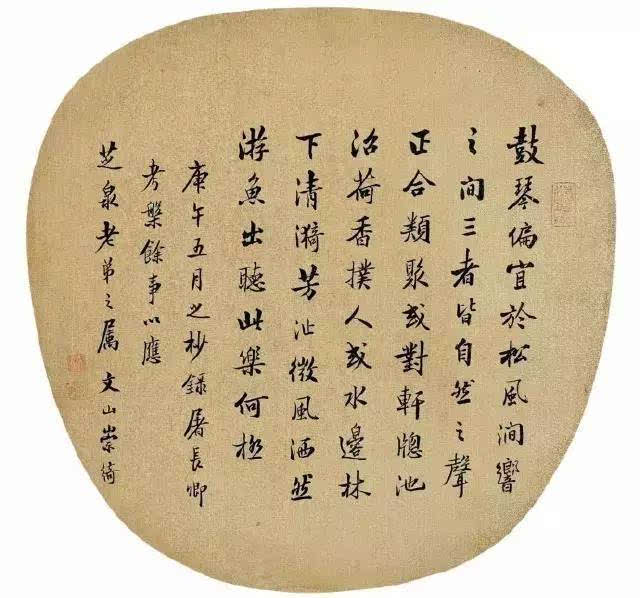 鼓琴偏宜於松風澗響
之間三者皆自然之聲
正合類聚或對軒牕池
沼荷香撲人或水邊林
下清漪芳沚微風洒然
游魚出聽此樂何極
庚午五月之杪錄屠長卿
考槃餘事以應
芝泉老弟之属 文山崇綺